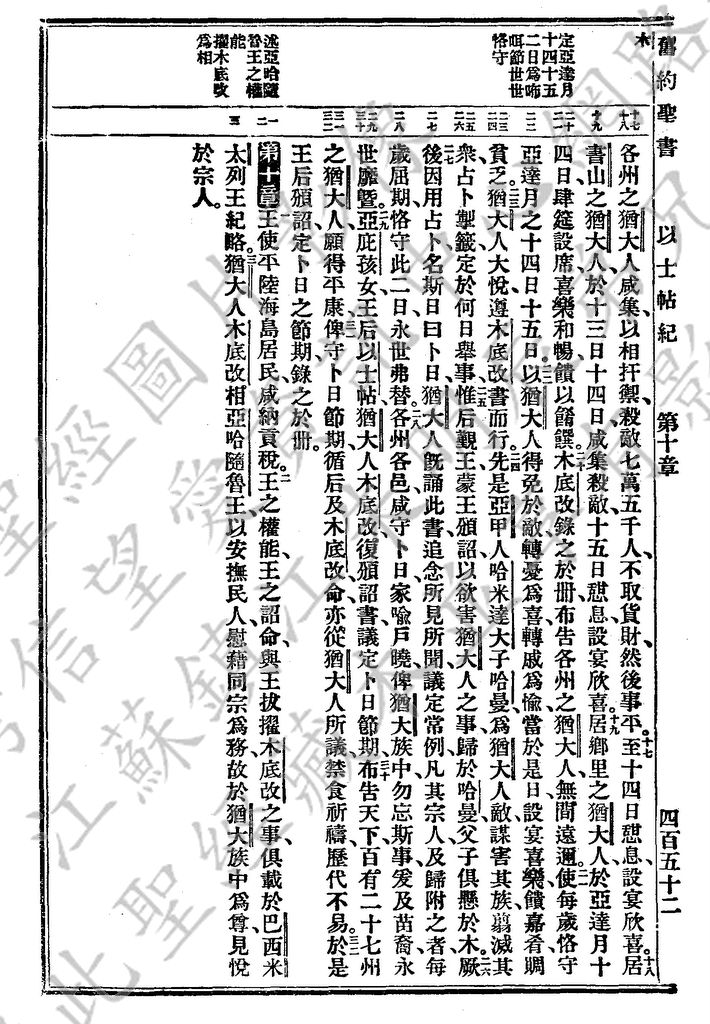 舊約聖書 以士帖紀 第十章 四百五十二
木
定亞達月
十四十五
二日爲咘
咡節世世
恪守
述亞哈隨
魯王之權
能
擢木底改
爲相
各州之猶大人咸集以相扞禦殺敵七萬五千人不取貨財然後事平至十四日憇息設宴欣喜居
書山之猶大人於十三日十四日咸集殺敵十五日憇息設宴欣喜居鄉里之猶大人於亞達月十
四日肆筵設席喜樂和暢饋以餚饌木底改錄之於册布告各州之猶大人無間遠邇使每歲恪守
亞達月之十四日十五日以猶大人得免於敵轉憂爲喜轉戚爲愉當於是日設宴喜樂饋嘉肴賙
貧乏猶大人大悅遵木底改書而行先是亞甲人哈米達大子哈曼爲猶大人敵謀害其族翦滅其
衆占卜掣籤定於何日舉事惟后覲王蒙王頒詔以欲害猶大人之事歸於哈曼父子俱懸於木厥
後因用占卜名斯日曰卜日猶大人旣誦此書追念所見所聞議定常例凡其宗人及歸附之者每
歲屆期恪守此二日永世弗替各州各邑咸守卜日家喻戶曉俾猶大族中勿忘斯事爰及苗裔永
世靡暨亞庇孩女王后以士帖猶大人木底改復頒詔書議定卜日節期布告天下百有二十七州
之猶大人願得平康俾守卜日節期循后及木底改命亦從猶大人所議禁食祈禱歷代不易於是
王后頒詔定卜日之節期錄之於册
第十章 王使平陸海島居民咸納貢稅王之權能王之詔命與王拔擢木底改之事俱載於巴西米
太列王紀略猶大人木底改相亞哈隨魯王以安撫民人慰藉同宗爲務故於猶大族中爲尊見悅
於宗人